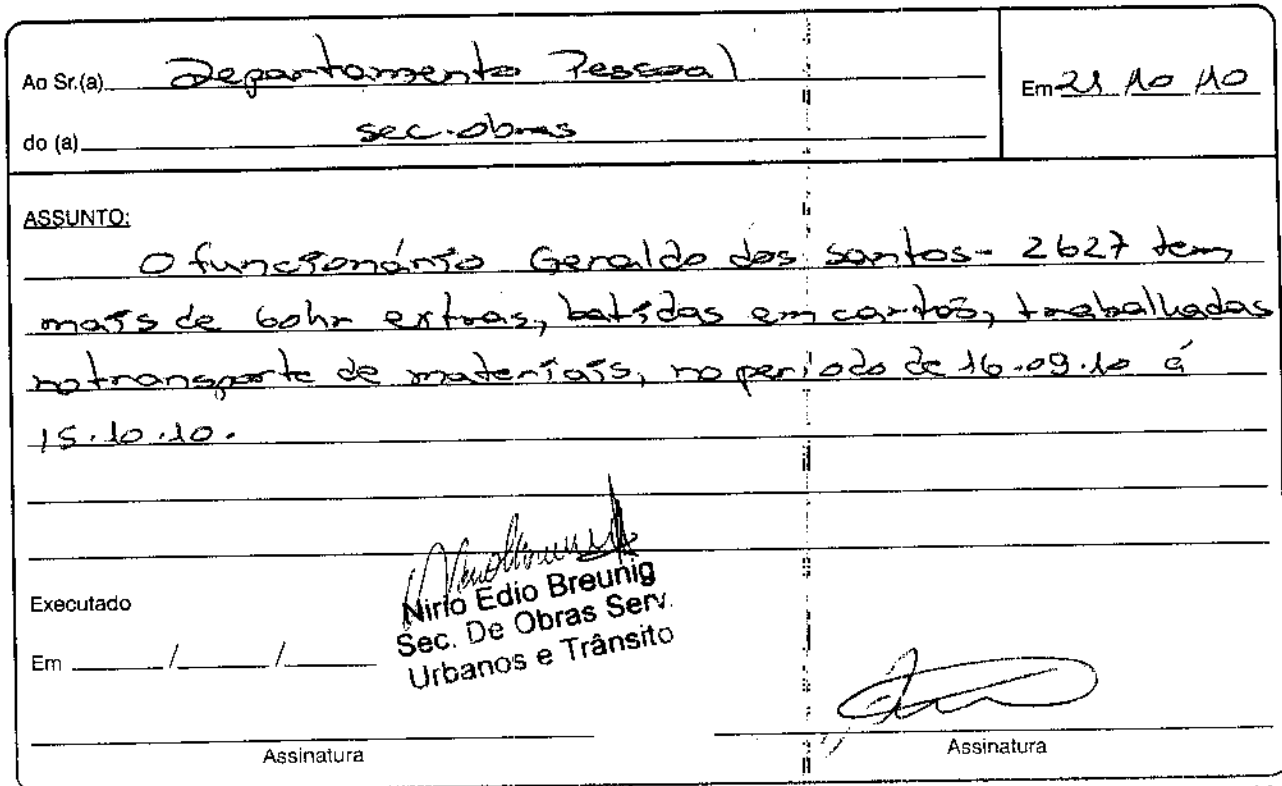 Ao Sr.(a) Departamento Pessoal
Em 21 10 10
do (a) sec. obras
ASSUNTO:
O funcionário Geraldo dos santos - 2627 tem
mais de 60hr extras, batidas em cartão, trabalhadas
no transporte de materiais, no periodo de 16.09.10 á
15.10.10.
Nirio Edio Breunig
Sec. De Obras Serv.
Urbanos e Trânsito
Executado
Em / /
Assinatura
Assinatura